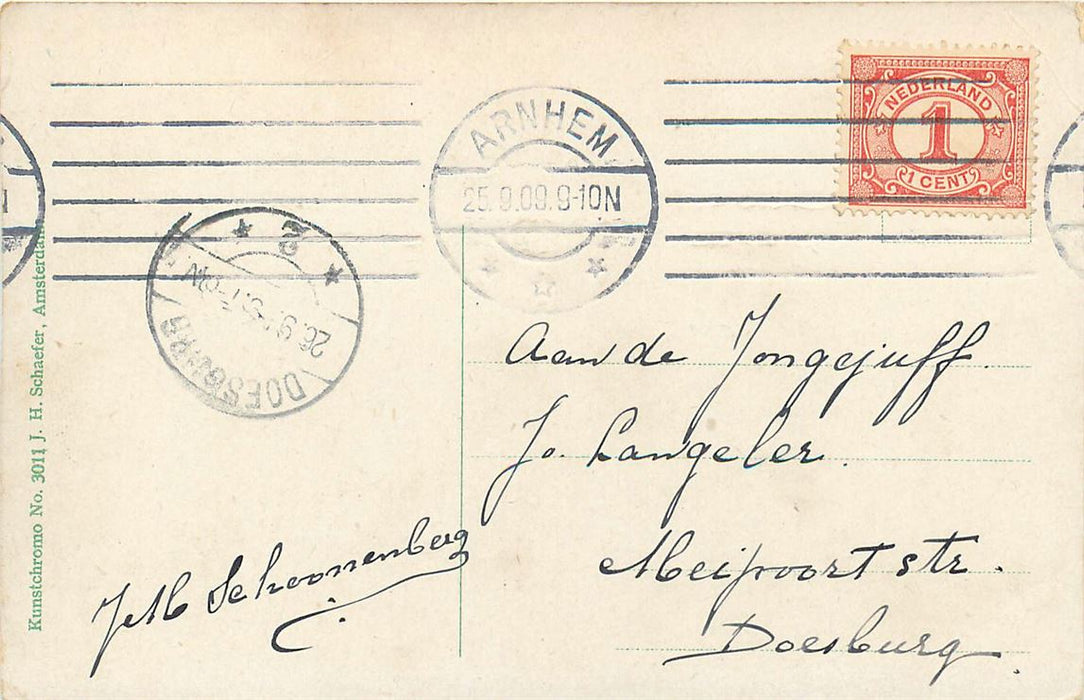 ARNHEM
25.9.09.9-10N
NEDERLAND
1
1 CENT
2
26.9
DOESBURG
Aan de Jongejuff.
Jo. Langeler.
Meipoortstr.
Doesburg
JM Schoonenberg
Kunstchromo No. 3011 J. H. Schaefer, Amsterdam